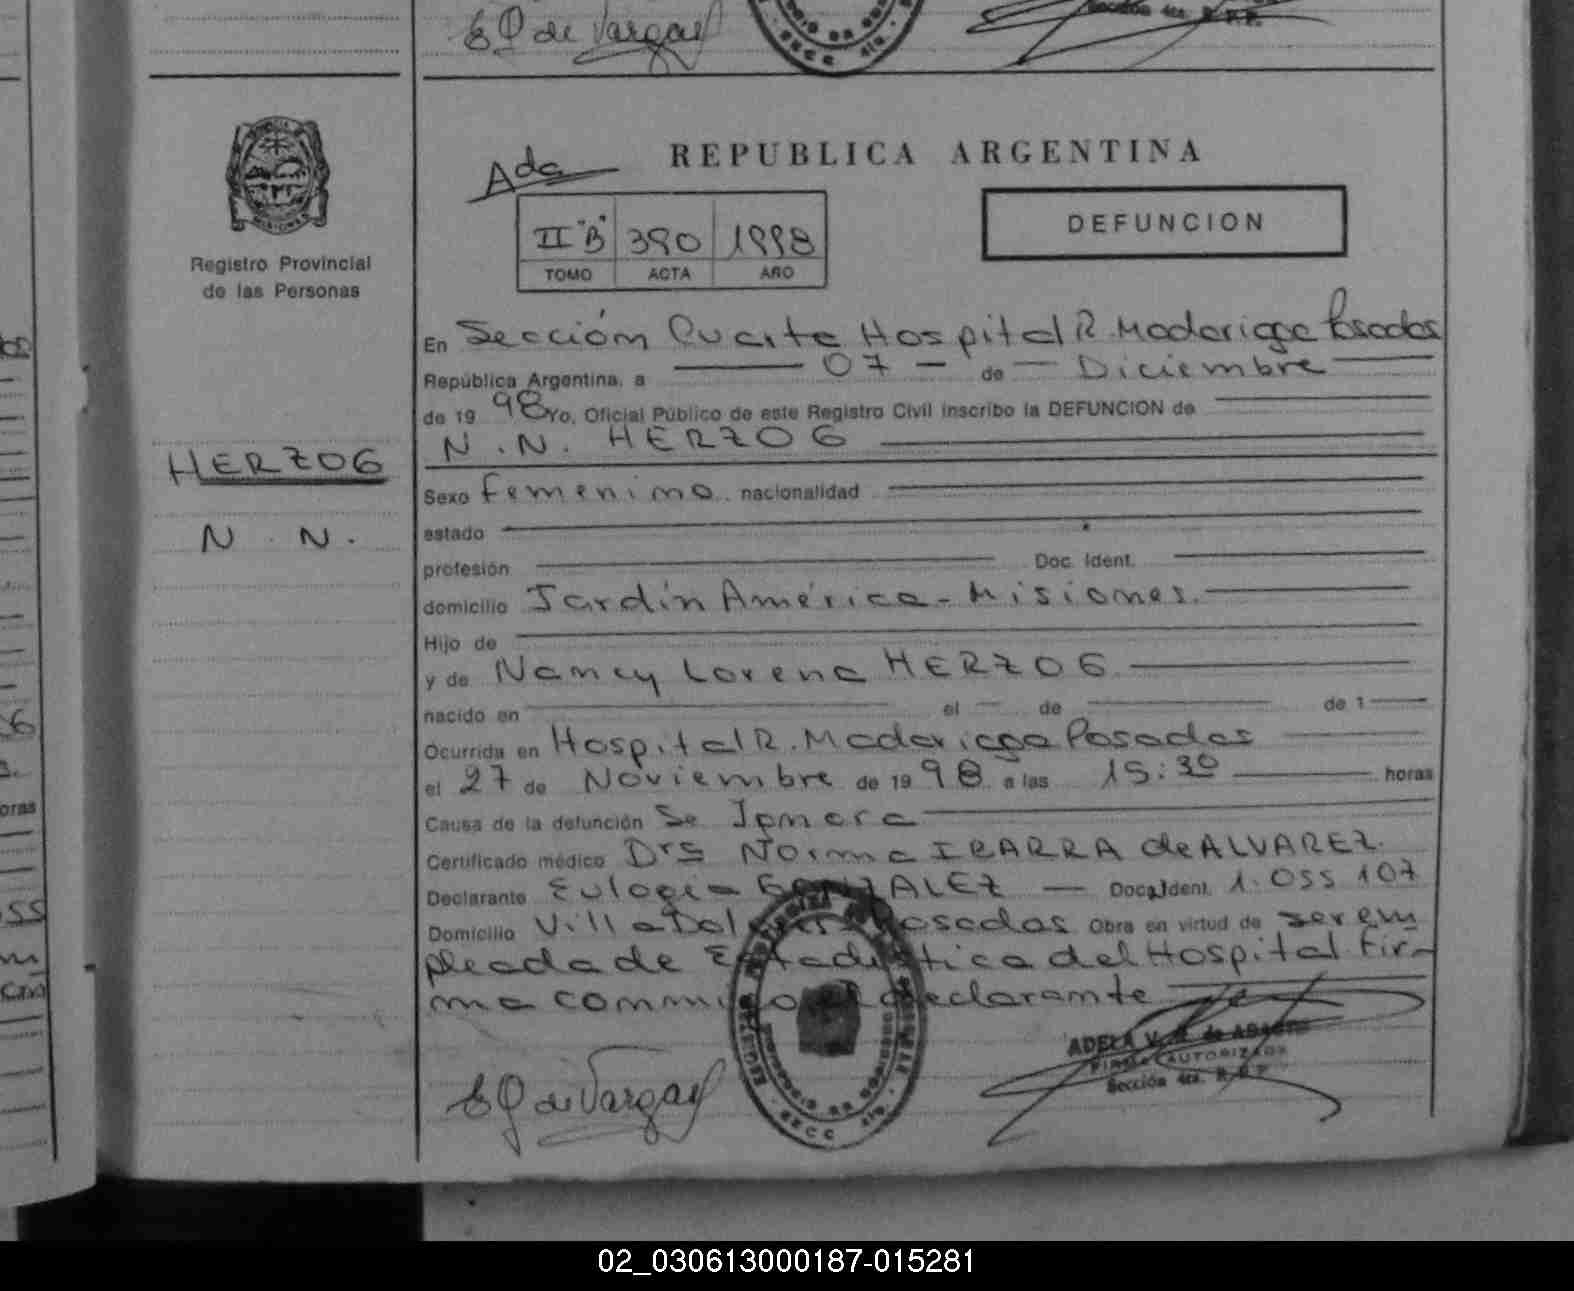 E Q de Vargas
Sección 4ta. R.P.P.
REPUBLICA ARGENTINA
Ada
DEFUNCION
II "B" 390 1998
TOMO ACTA AÑO
Registro Provincial
de las Personas
En Sección Cuarta Hospital R. Madariaga Posadas
República Argentina, a 07 de Diciembre
de 19 98 Yo, Oficial Público de este Registro Civil inscribo la DEFUNCION de
N.N. HERZOG
HERZOG
Sexo femenino nacionalidad
N. N.
estado
profesión Doc. Ident.
domicilio Jardín América - Misiones.
Hijo de
y de Nancy Lorena HERZOG
nacido en el de de 1
Ocurrida en Hospital R. Madariaga Posadas
el 27 de Noviembre de 19 98 a las 15:30 horas
Causa de la defunción Se Ignora
Certificado médico Drs Norma IBARRA de ALVAREZ.
Declarante Eulogia GONZALEZ — Doc. Ident. 1.055 107
Domicilio Villa Dolores Posadas Obra en virtud de ser em
pleada de Estadística del Hospital Fir-
ma conmigo el declarante
ADELA V. de
FIRMA AUTORIZADA
Sección 4ta. R.P.P.
E Q de Vargas
02_030613000187-015281